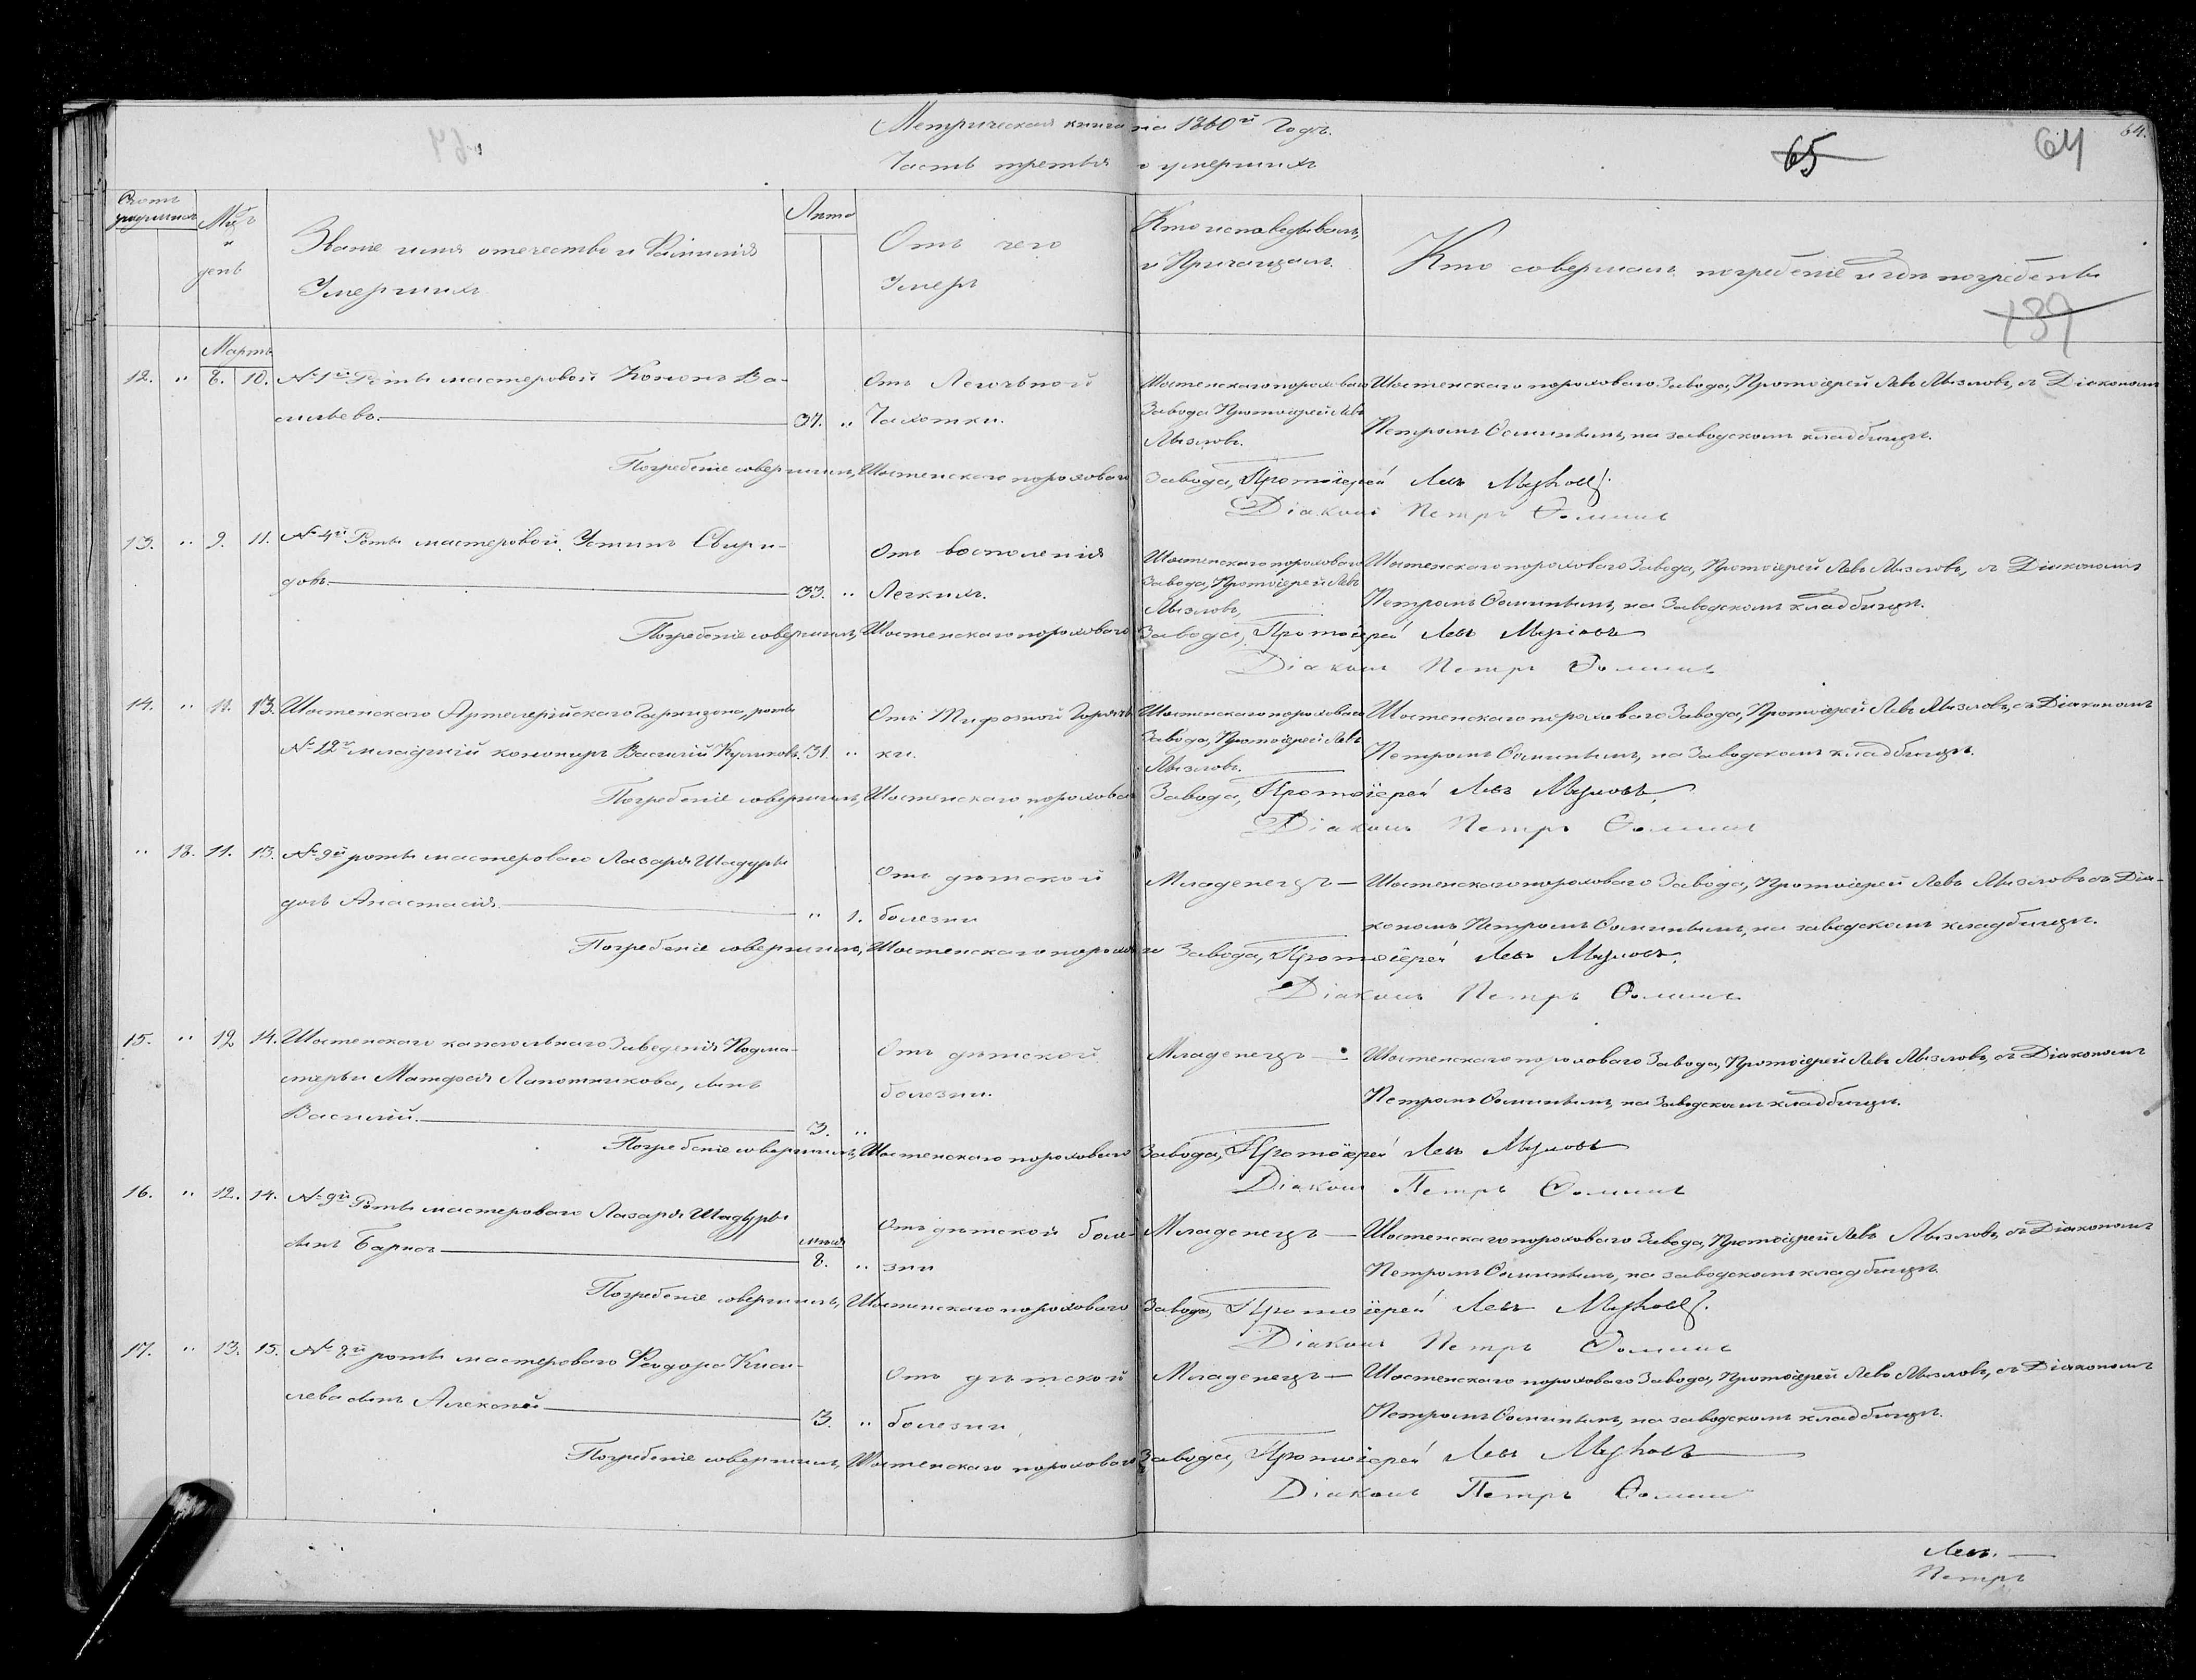 Метрическая книга на 1860й Годъ.
Часть третья о умершихъ
65
64
64.
Счетъ умершихъ
Мцъ и день
Званіе имя отечество и Фамилія
Умершихъ
Лета
Отъ чего
Умеръ
Кто исповедывалъ,
и Причащалъ.
Кто совершалъ погребеніе и где погребены
139
Мартъ
12. " 8. 10. №1й Роты мастеровой Кононъ Ва-
сильевъ. 37. "
Отъ Легочьной
Чахотки.
Шостенскаго пороховаго
Завода Протоіерей Левъ
Мызловъ.
Шостенскаго пороховаго Завода, Протоіерей Левъ Мызловъ, съ Діакономъ
Петромъ Ѳоминымъ, на заводскомъ кладбищѣ.
Погребеніе совершилъ, Шостенскаго пороховаго Завода, Протоіерей Левъ
Діаконъ Петръ Ѳоминъ
13. " 9. 11. №4й Роты мастеровой, Устинъ Свири-
довъ. 33. "
Отъ восполенія
Легкихъ.
Шостенскаго пороховаго
Завода, Протоіерей Левъ
Мызловъ,
Шостенскаго пороховаго Завода, Протоіерей Левъ Мызловъ, съ Діакономъ
Петромъ Ѳоминымъ, на Заводскомъ кладбищѣ.
Погребеніе совершилъ, Шостенскаго пороховаго Завода, Протоіерей Левъ Мызловъ
Діаконъ Петръ Ѳоминъ
14. " 11. 13. Шостенскаго Артелерійскаго Гарнизона, роты
№12й младшій канониръ Василій Куликовъ. 31. "
Отъ Тифозной Горяч-
ки.
Шостенскаго пороховаго
Завода, Протоіерей Левъ
Мызловъ.
Шостенскаго пороховаго Завода, Протоіерей Левъ Мызловъ, съ Діакономъ
Петромъ Ѳоминымъ, на Заводскомъ кладбищѣ.
Погребеніе совершилъ, Шостенскаго пороховаго Завода, Протоіерей Левъ Мызловъ
Діаконъ Петръ Ѳоминъ
" 18. 11. 13. №9й роты мастероваго Лазаря Шадуры
дочь Анастасія " 1.
Отъ дѣтской
болезни
Младенецъ —
Шостенскаго пороховаго Завода, Протоіерей Левъ Мызловъ съ Діа-
кономъ Петромъ Ѳоминымъ, на заводскомъ кладбищѣ.
Погребеніе совершилъ, Шостенскаго пороховаго Завода, Протоіерей Левъ Мызловъ.
Діаконъ Петръ Ѳоминъ
15. " 12 14. Шостенскаго капсюльнаго Заведенія Подма-
стерьи Матфея Лапотникова, сынъ
Василій. 3. "
Отъ дѣтской
болезни.
Младенецъ —
Шостенскаго пороховаго Завода, Протоіерей Левъ Мызловъ, съ Діакономъ
Петромъ Ѳоминымъ, на Заводскомъ кладбищѣ.
Погребеніе совершилъ, Шостенскаго пороховаго Завода, Протоіерей Левъ Мызловъ
Діаконъ Петръ Ѳоминъ
16. " 12. 14. №9й Роты мастероваго Лазаря Шадуры
сынъ Борисъ 8. "
Отъ дѣтской боле-
зни
Младенецъ —
Шостенскаго пороховаго Завода, Протоіерей Левъ Мызловъ, съ Діакономъ
Петромъ Ѳоминымъ, на заводскомъ кладбищѣ
Погребеніе совершилъ, Шостенскаго пороховаго Завода, Протоіерей Левъ
Діаконъ Петръ Ѳоминъ
17. " 13. 15. №8й роты мастероваго Ѳеодора Кисе-
лева сынъ Алексѣй 3. "
Отъ дѣтской
болезни
Младенецъ —
Шостенскаго пороховаго Завода, Протоіерей Левъ Мызловъ, съ Діакономъ
Петромъ Ѳоминымъ, на заводскомъ кладбищѣ.
Погребеніе совершилъ, Шостенскаго пороховаго Завода, Протоіерей Левъ Мызловъ
Діаконъ Петръ Ѳоминъ
Левъ.
Петръ